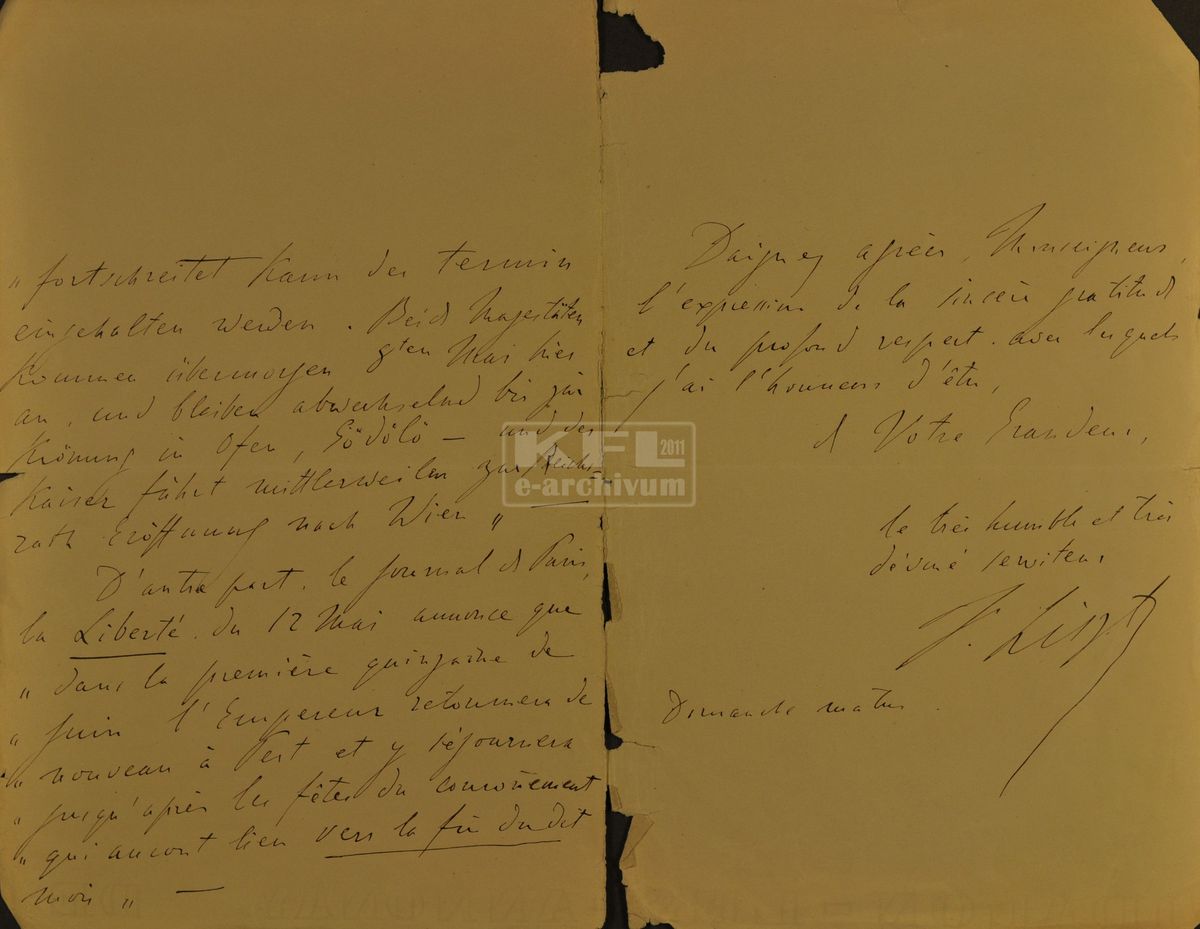 „ fortschreitet kann der Termin
eingehalten werden. Beide Majestäten
kommen übermorgen 9ten Mai hier
an, und bleiben abwechselnd bis zur
Krönung in Ofen, Gödölö — und der
Kaiser fährt mittlerweilen zur Reichs-
rath Eröffnung nach Wien „ —
D'autre part, le journal de Paris,
la Liberté du 12 Mai annonce que
„ dans la première quinzaine de
„ Juin l'Empereur retournera de
„ nouveau à Pest et y séjournera
„ jusqu'après les fêtes du couronnement
„ qui auront lieu vers la fin du dit
mois „ —
Daignez agréer, Monseigneur,
l'expression de la sincère gratitude
et du profond respect avec lesquels
j'ai l'honneur d'être,
de Votre Grandeur,
le très humble et très
dévoué serviteur
F. Liszt
Dimanche matin.
KFL 2011
e-archivum